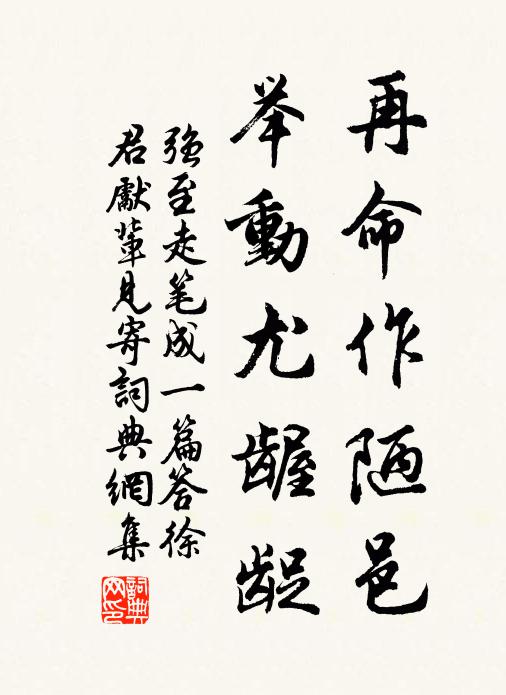 再命作陋邑
举動尤齷齪
强至走笔成一篇答徐
君獻輩見寄詞典網集
詞典网印